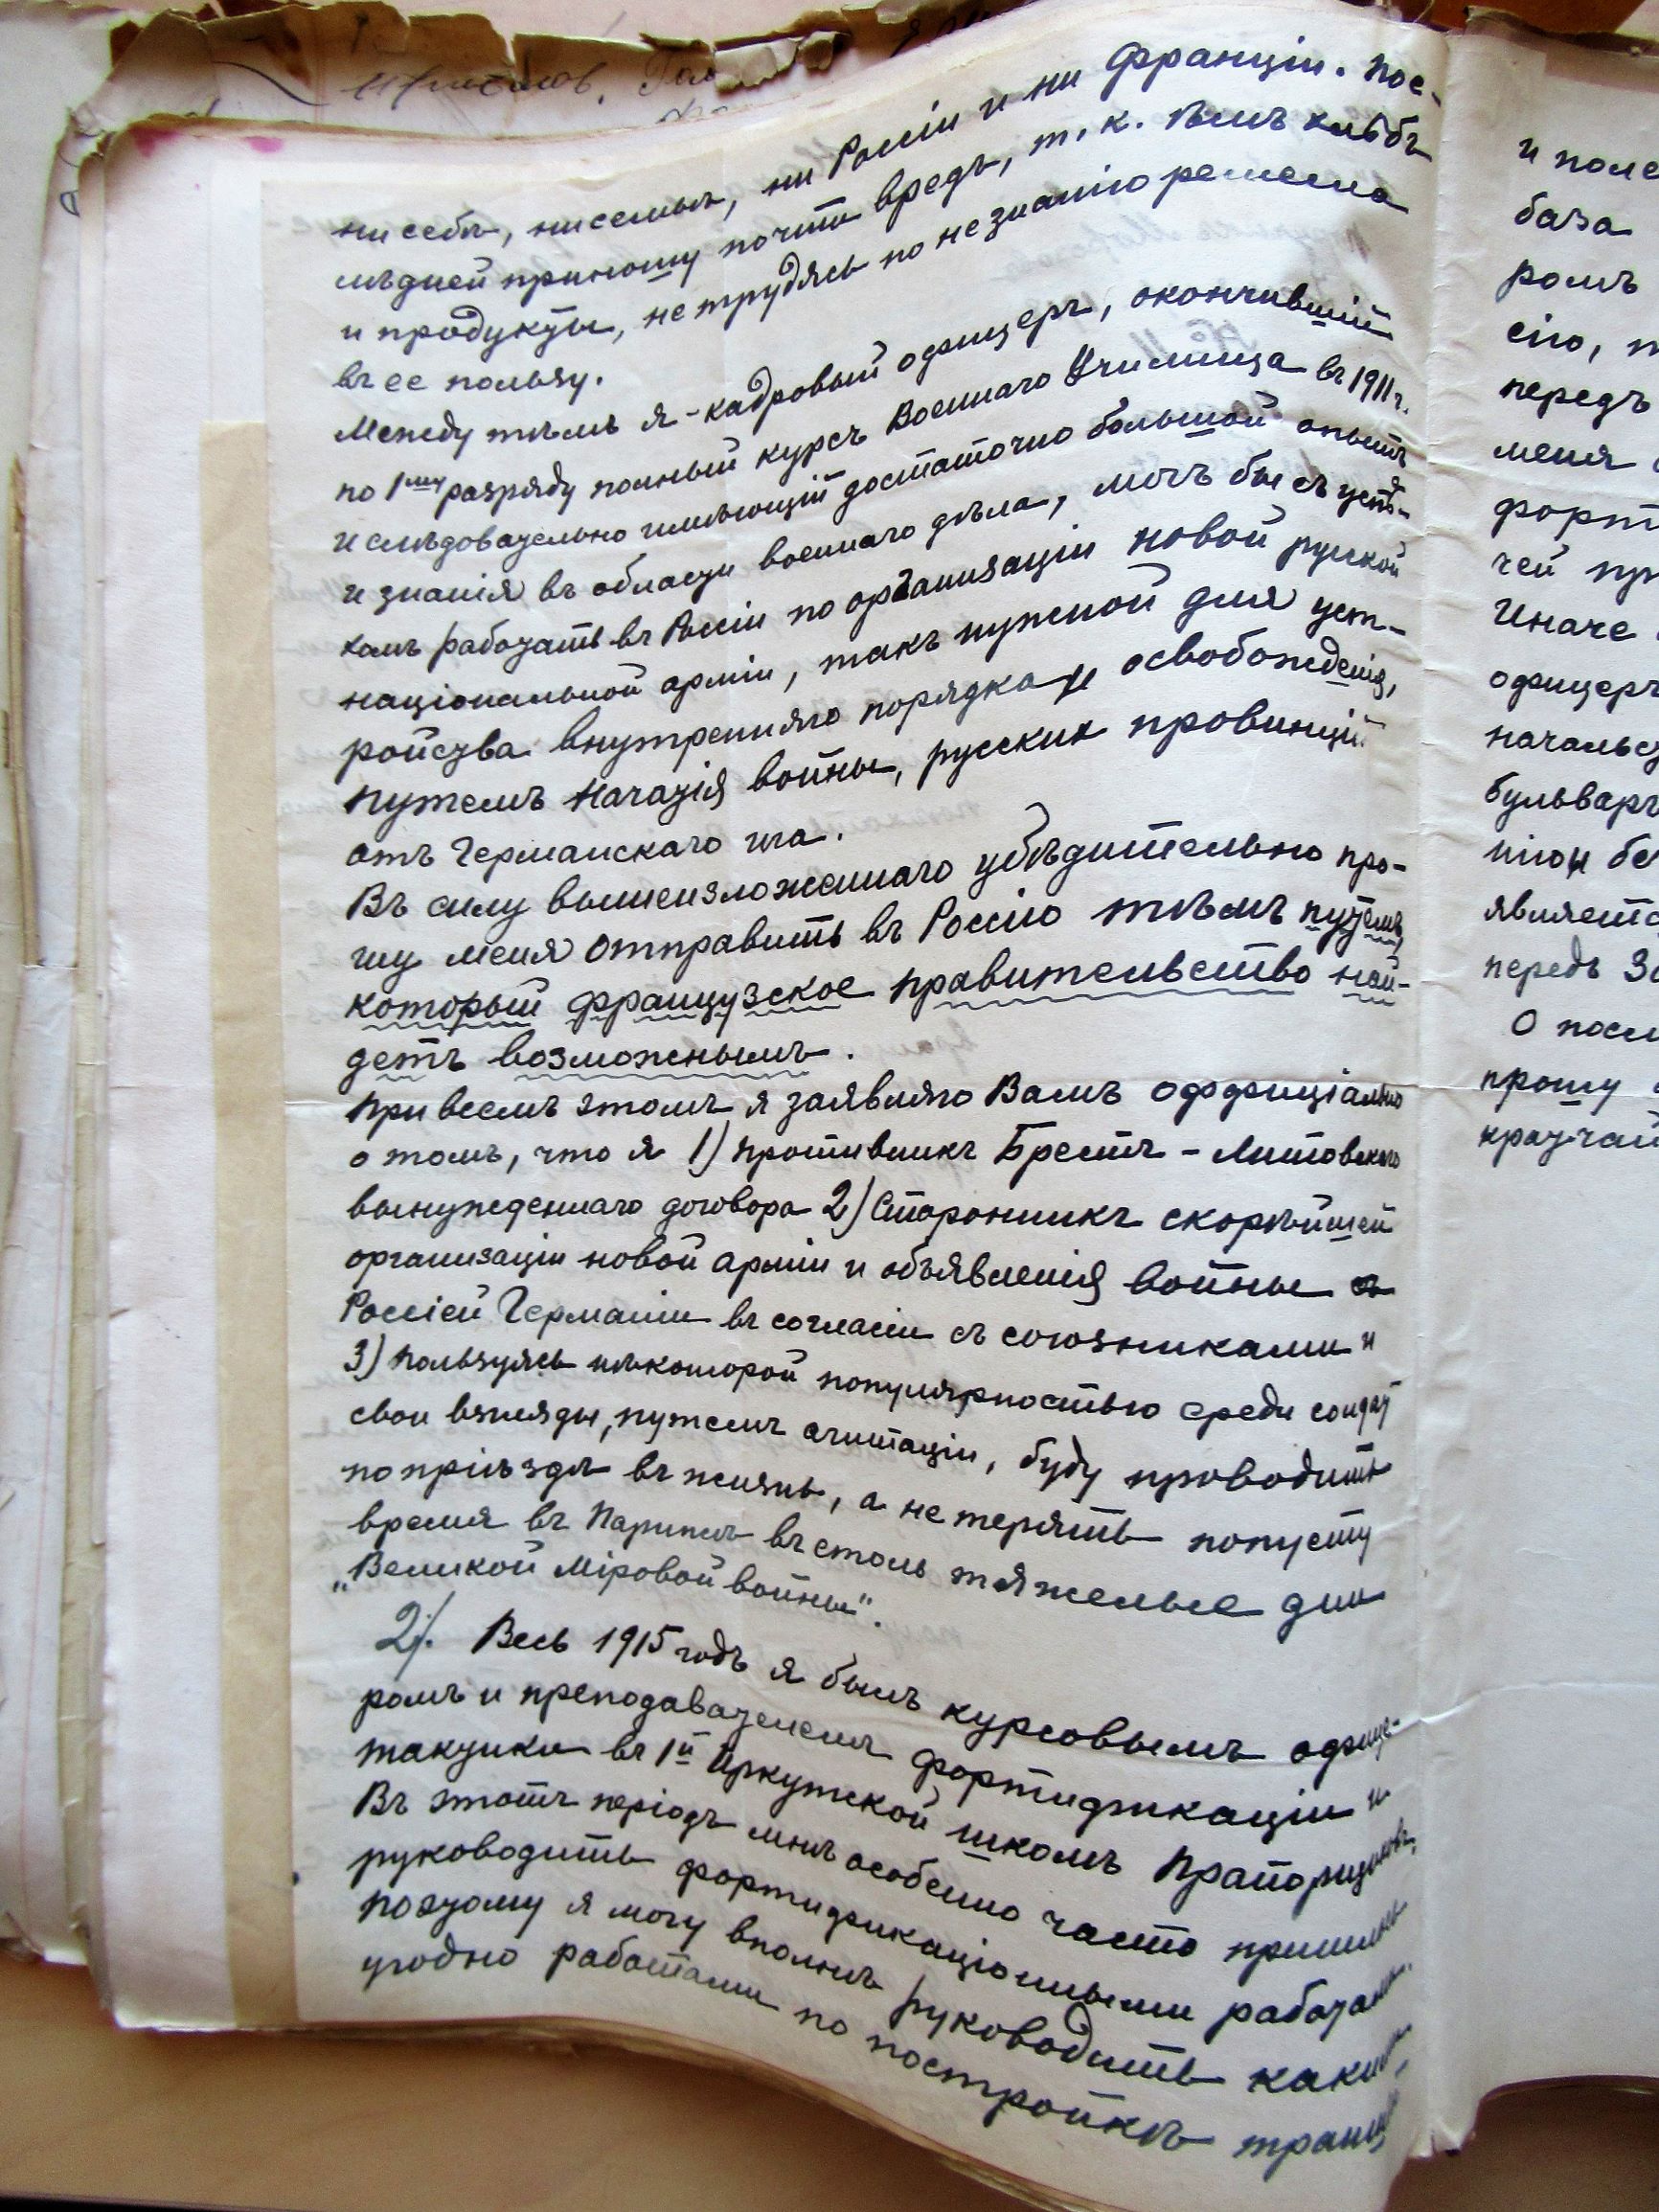 ни себѣ, ни семьѣ, ни Россіи и ни Франціи. Пос-
лѣдней приношу почти вредъ, т. к. ѣмъ хлѣбъ
и продукты, не трудясь по незнанію ремесла
въ ее пользу.
Между тѣмъ я - кадровый офицеръ, окончившій
по 1му разряду полный курсъ Военнаго Училища въ 1911 г.
и слѣдовательно имѣющій достаточно большой опытъ
и знанія въ области военнаго дѣла, могъ бы съ успѣ-
хомъ работать въ Россіи по организаціи новой русской
національной арміи, такъ нужной для уст-
ройства внутренняго порядка и освобожденія,
путемъ начатія войны, русскихъ провинцій
отъ Германскаго ига.
Въ силу вышеизложеннаго убѣдительно про-
шу меня отправить въ Россію тѣмъ путемъ,
который французское правительство най-
детъ возможнымъ.
При всемъ этомъ я заявляю Вамъ оффиціально
о томъ, что я 1) противникъ Брестъ-Литовскаго
вынужденнаго договора 2) Сторонникъ скорѣйшей
организаціи новой арміи и объявленія войны
Россіей Германіи въ согласіи съ союзниками и
3) пользуясь нѣкоторой популярностью среди солдатъ
свои взгляды, путемъ агитаціи, буду проводить
по пріѣздѣ въ жизнь, а не терять попусту
время въ Парижѣ въ столь тяжелые дни
„Великой Міровой войны".
2/. Весь 1915 годъ я былъ курсовымъ офице-
ромъ и преподавателемъ фортификаціи и
тактики въ 1й Иркутской школѣ Прапорщиковъ.
Въ этотъ періодъ мнѣ особенно часто пришлось
руководить фортификаціонными работами,
поэтому я могу вполнѣ руководить какими
угодно работами по постройкѣ транш
и поле
база
ромъ
сію, т
передъ
меня
форт
чей пр
Иначе
офицеръ
началь
бульваръ
бе
являетс
передъ За
О посл
прошу
кратчай